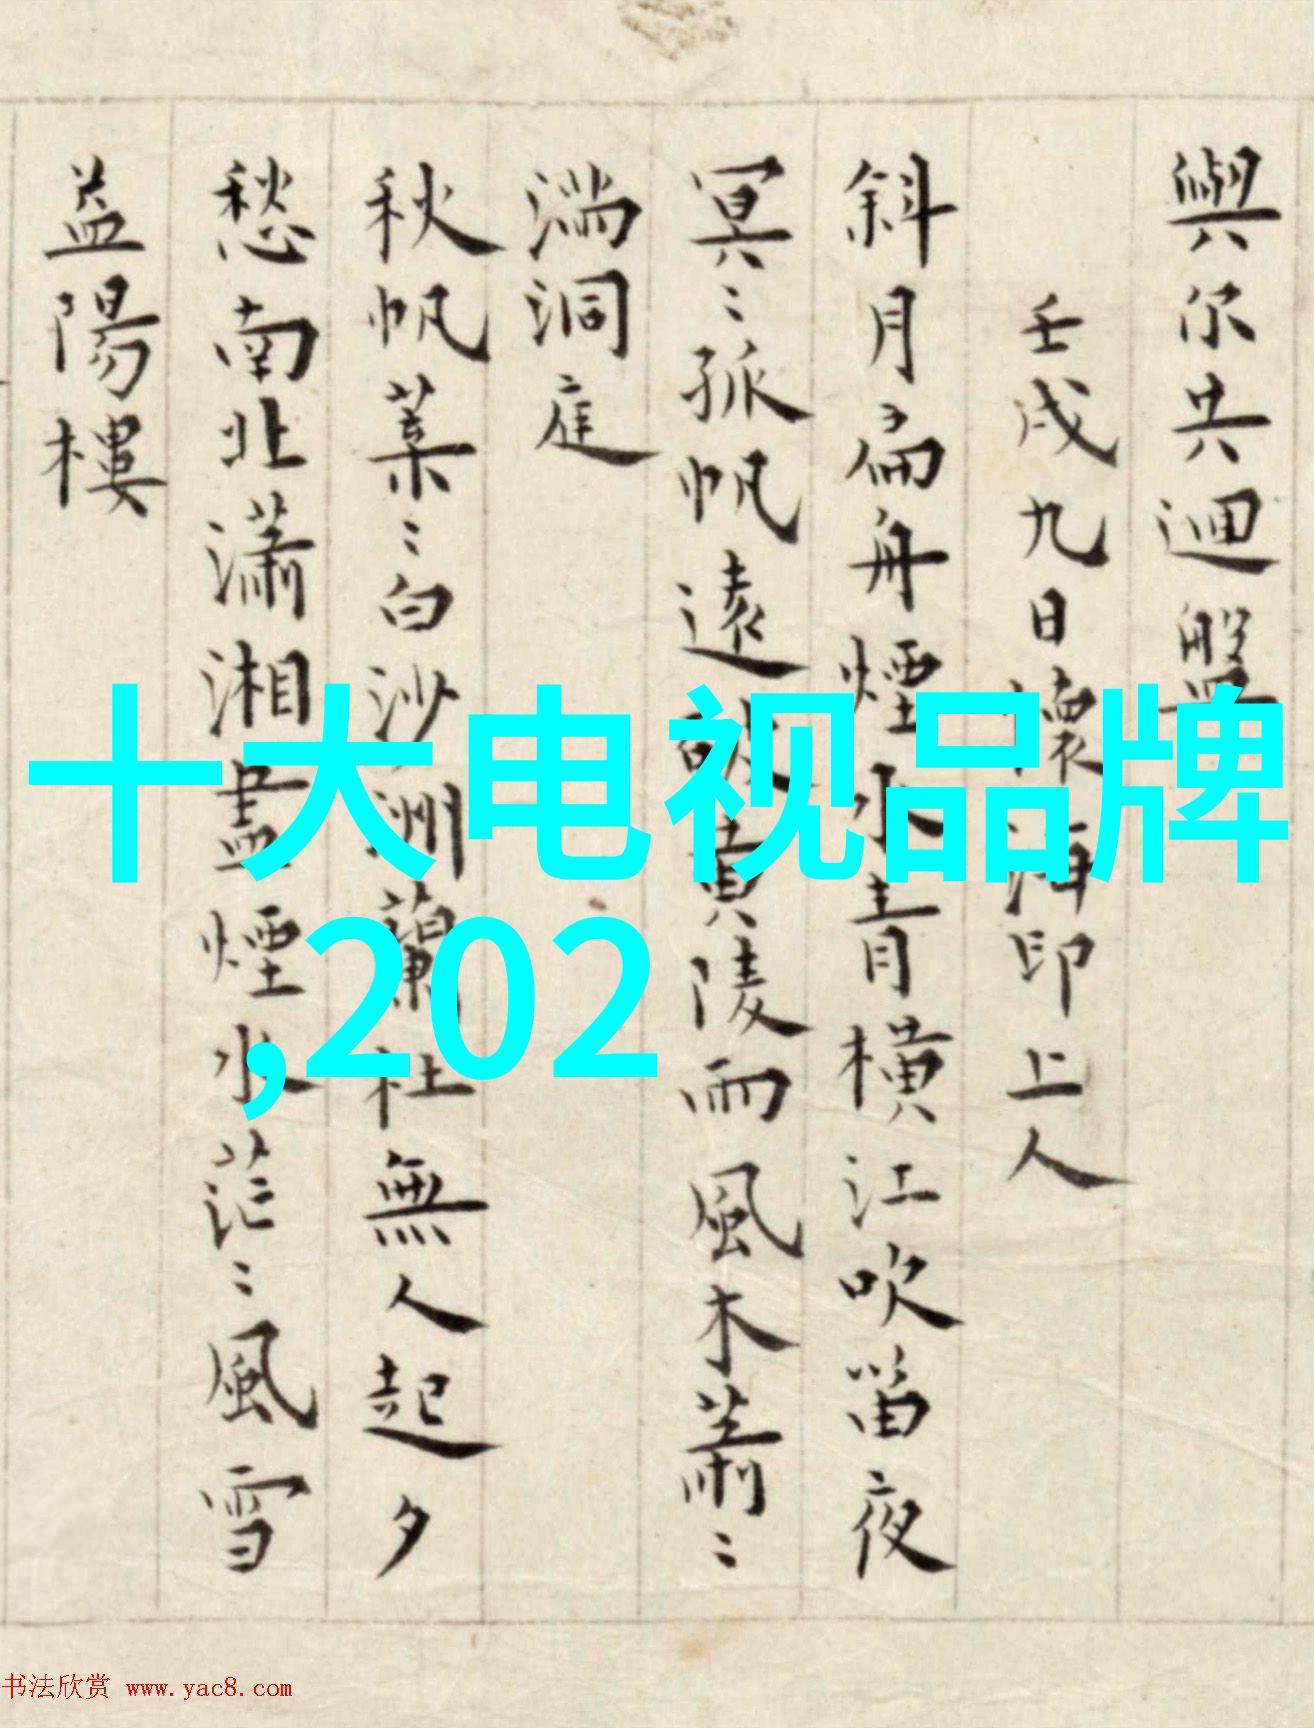 與尔共迴盤
壬戌九日懷海印上人
斜月扁舟煙水青月橫江吹笛夜
冥〻孤帆遠 黄陵雨風木蕭〻
湍洞庭
秋帆葉〻白沙洲蘭杜無人起夕
愁南北瀟湘盡煙水茫〻風雪
益陽樓
十大电视品牌
,202
书法欣赏 www.yac8.com